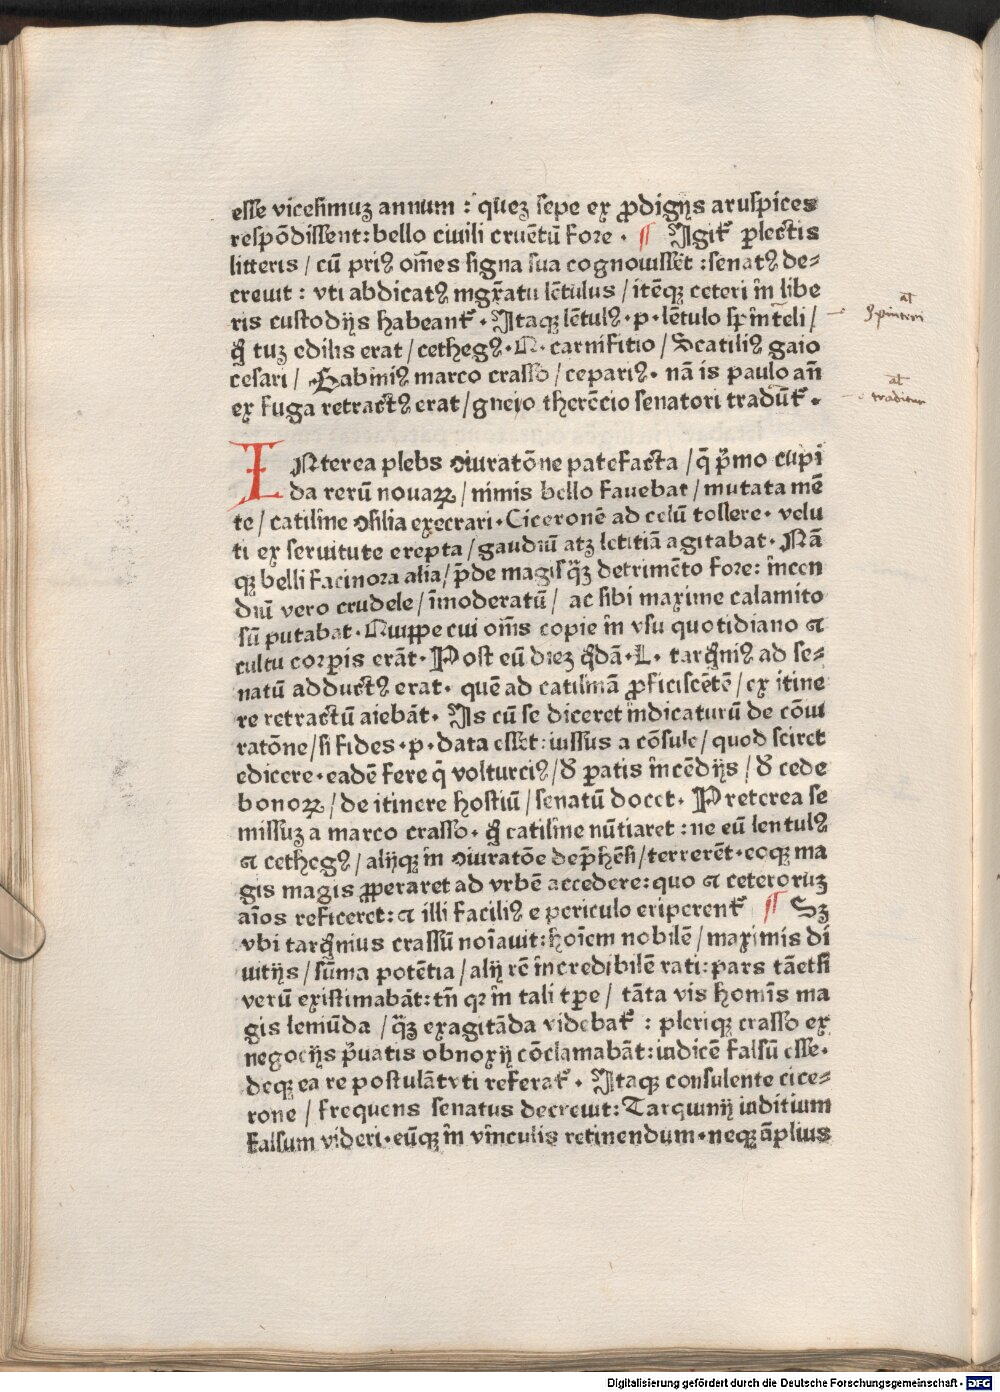 esse vicesimuꝫ annum : queꝫ sepe ex ꝓdigijs aruspices
respōdissent: bello ciuili cruētū fore . ¶ Igit᷑ ꝑlectis
litteris / cū priꝰ om̄es signa sua cognouissēt : senatꝰ de⸗
creuit : vti abdicatꝰ mgr̄atu lētulus / itēqꝫ ceteri in libe
ris custodijs habeant᷑ . Itaqꝫ lētulꝰ . p . lētulo spinteli /
al̄ spinteri
q̇ tuꝫ edilis erat / cethegꝰ . Q . carnifitio / Scatiliꝰ gaio
cesari / Gabiniꝰ marco crasso / cepariꝰ . nā is paulo an̄
al̄ traditur
ex fuga retractꝰ erat / gneio therēcio senatori tradūt᷑ .
INterea plebs ꝯiuratōne patefacta / q̄ p̄mo cupi
da rerū nouaꝝ / nimis bello fauebat / mutata mē
te / catiline ꝯsilia execrari . Ciceronē ad celū tollere . velu
ti ex seruitute erepta / gaudiū atꝫ letitiā agitabat . Nā
qꝫ belli facinora alia / p̄de magis q̄ꝫ detrimēto fore : incen
diū vero crudele / īmoderatū / ac sibi maxime calamito
sū putabat . Quippe cui om̄s copie in vsu quotidiano ⁊
cultu corꝑis erāt . Post eū dieꝫ q̇dā . L . tarq̇niꝰ ad se⸗
natū adductꝰ erat . quē ad catilinā ꝓficiscētē / ex itine
re retractū aiebāt . Is cū se diceret indicaturū de cōiu
ratōne / si fides . p . data esset : iussus a cōsule / quod sciret
edicere . eadē fere q̄ volturciꝰ / ꝺ ꝑatis incēdijs / ꝺ cede
bonoꝝ / de itinere hostiū / senatū docet . Preterea se
missuꝫ a marco crasso . q̇ catiline nūtiaret : ne eū lentulꝰ
⁊ cethegꝰ / alijqꝫ in ꝯiuratōe dep̄hēsi / terrerēt . eoqꝫ ma
gis magis ꝓperaret ad vrbē accedere : quo ⁊ ceteroruꝫ
aīos reficeret : ⁊ illi faciliꝰ e periculo eriperent᷑ ¶ Sꝫ
vbi tarq̇nius crassū noīauit : hoīem nobilē / maximis di
uitijs / sūma potētia / alij rē incredibilē rati : pars tāetsi
verū existimabāt : tn̄ qꝛ in tali tꝑe / tāta vis homīs ma
gis leniūda / q̄ꝫ exagitāda videbat᷑ : pleriqꝫ crasso ex
negocijs p̄uatis obnoxij cōclamabāt : indicē falsū esse .
deqꝫ ea re postulāt vti referat᷑ . Itaqꝫ consulente cice⸗
rone / frequens senatus decreuit : Tarquinij inditium
falsum videri . eūqꝫ in vinculis retinendum . neqꝫ āplius
Digitalisierung gefördert durch die Deutsche Forschungsgemeinschaft - DFG